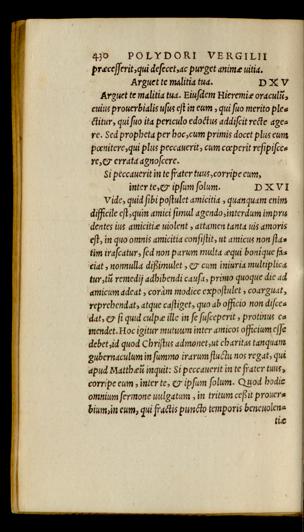 430 POLYDORI VERGILII
præcesserit, qui desecet, ac purget animæ uitia.
Arguet te malitia tua. DXV
Arguet te malitia tua. Eiusdem Hieremiæ oraculū,
cuius prouerbialis usus est in eum, qui suo merito ple-
ctitur, qui suo ita periculo edoctus addiscit recte age-
re. Sed propheta per hoc, cum primis docet plus eum
pœnitere, qui plus peccauerit, cum cœperit resipisce-
re, & errata agnoscere.
Si peccauerit in te frater tuus, corripe eum,
inter te, & ipsum solum. DXVI
Vide, quid sibi postulet amicitia, quanquam enim
difficile est, quin amici simul agendo, interdum impru
dentes ius amicitiæ uiolent, attamen tanta uis amoris
est, in quo omnis amicitia consistit, ut amicus non sta-
tim irascatur, sed non parum multa æqui bonique fa-
ciat, nonnulla dissimulet, & cum iniuria multiplica
tur, tū remedij adhibendi causa, primo quoque die ad
amicum adeat, coràm modice expostulet, coarguat,
reprehendat, atque castiget, quo ab officio non disce-
dat, & si quid culpæ ille in se susceperit, protinus e-
mendet. Hoc igitur mutuum inter amicos officium esse
debet, id quod Christus admonet, ut charitas tanquam
gubernaculum in summo irarum fluctu nos regat, qui
apud Matthæū inquit: Si peccauerit in te frater tuus,
corripe eum, inter te, & ipsum solum. Quod hodie
omnium sermone uulgatum, in tritum cessit prouer-
bium, in eum, qui fractis puncto temporis beneuolen-
tiæ